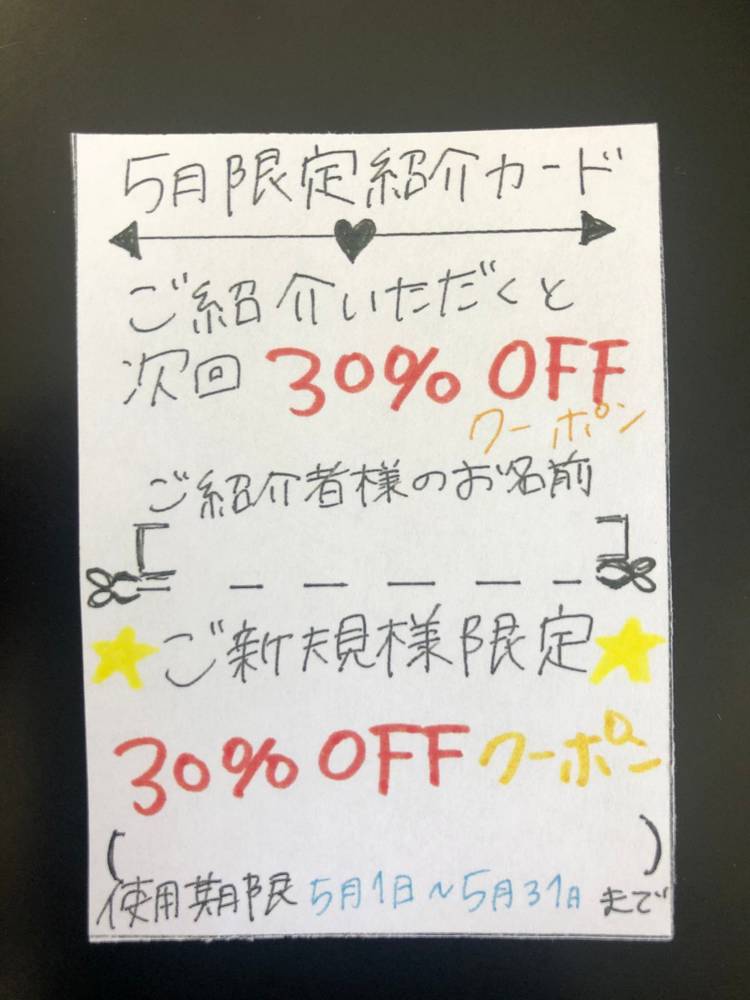 5月限定紹介カード
ご紹介いただくと
次回 30% OFF
クーポン
ご紹介者様のお名前
ご新規様限定
30% OFF クーポン
(　　)
使用期限 5月1日~5月31日 まで